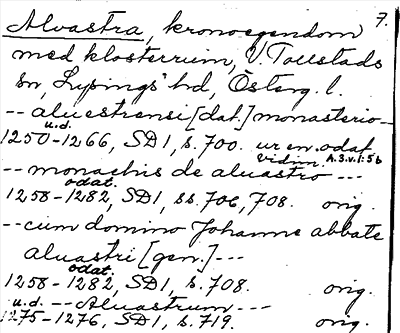 7.
Alvastra, kronoegendom
med klosterruin, V. Tollstads
sn, Lysings hd, Österg. l.
-- aluestrensi [dat.] monasterio --
u.d.
1250-1266, SD 1, s. 700. ur en odat.
vidim. A.3.v.f:5b
-- monachis de aluastro ---
odat.
1258-1282, SD 1, ss. 706, 708. orig.
-- cum domino Johanne abbate
aluastri [gen.] ---
odat.
1258-1282, SD 1, s. 708. orig.
u.d. --- Aluastrum ---
1275-1276, SD 1, s. 719. orig.